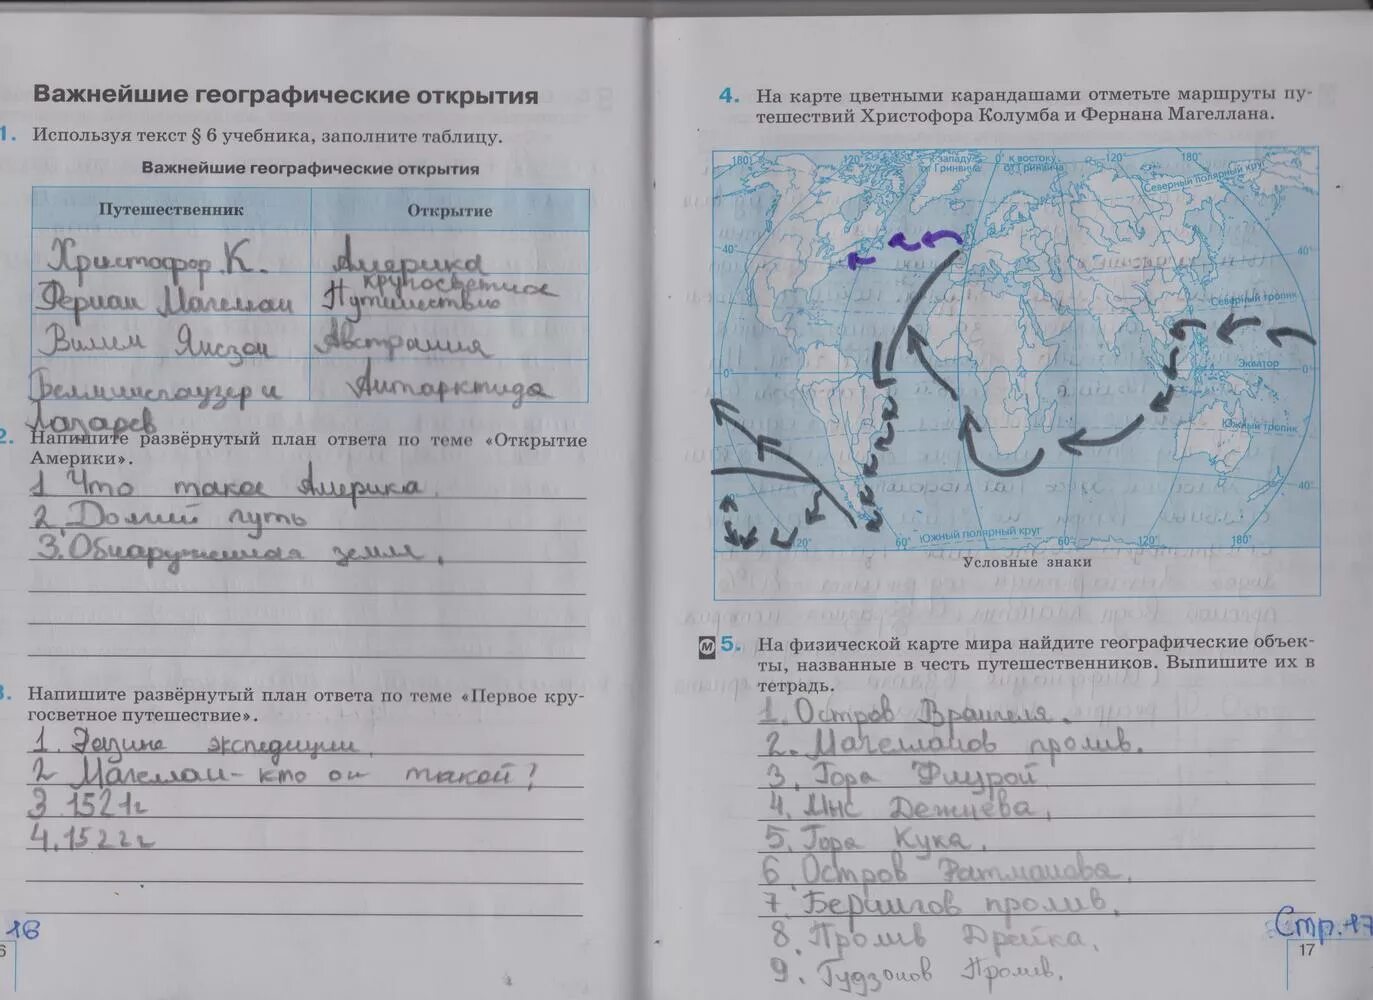 Важнейшие географические открытия
1. Используя текст § 6 учебника, заполните таблицу.
Важнейшие географические открытия
Путешественник Открытие
Христофор. К. Америка
Фернан Магеллан кругосветное Путишествие
Вилим Янсзон Австралия
Беллинсгаузер и Антарктида
Лазарев
2. Напишите развёрнутый план ответа по теме «Открытие
Америки».
1 Что такое Америка.
2. Долгий путь
3. Обнаруженная земля.
3. Напишите развёрнутый план ответа по теме «Первое кру-
госветное путешествие».
1. экспедиции
2 Магеллан - кто он такой?
3. 1521г
4. 1522г
16
6
4. На карте цветными карандашами отметьте маршруты пу-
тешествий Христофора Колумба и Фернана Магеллана.
180° 120° к западу от Гринвича 0° к востоку от Гринвича 120° 180°
Северный полярный круг
40° 40°
Северный тропик
Экватор
0° 0°
Южный тропик
40°
Южный полярный круг
120° 60° 0° 60° 120° 180°
Условные знаки
М 5. На физической карте мира найдите географические объек-
ты, названные в честь путешественников. Выпишите их в
тетрадь.
1. Остров Врангеля.
2. Магелланов пролив.
3. Гора Фицрой
4. Мыс Дежнева.
5. Гора Кука.
6. Остров Ратманова.
7. Берингов пролив.
8. Пролив Дрейка.
9. Гудзонов Пролив.
Стр. 17
17